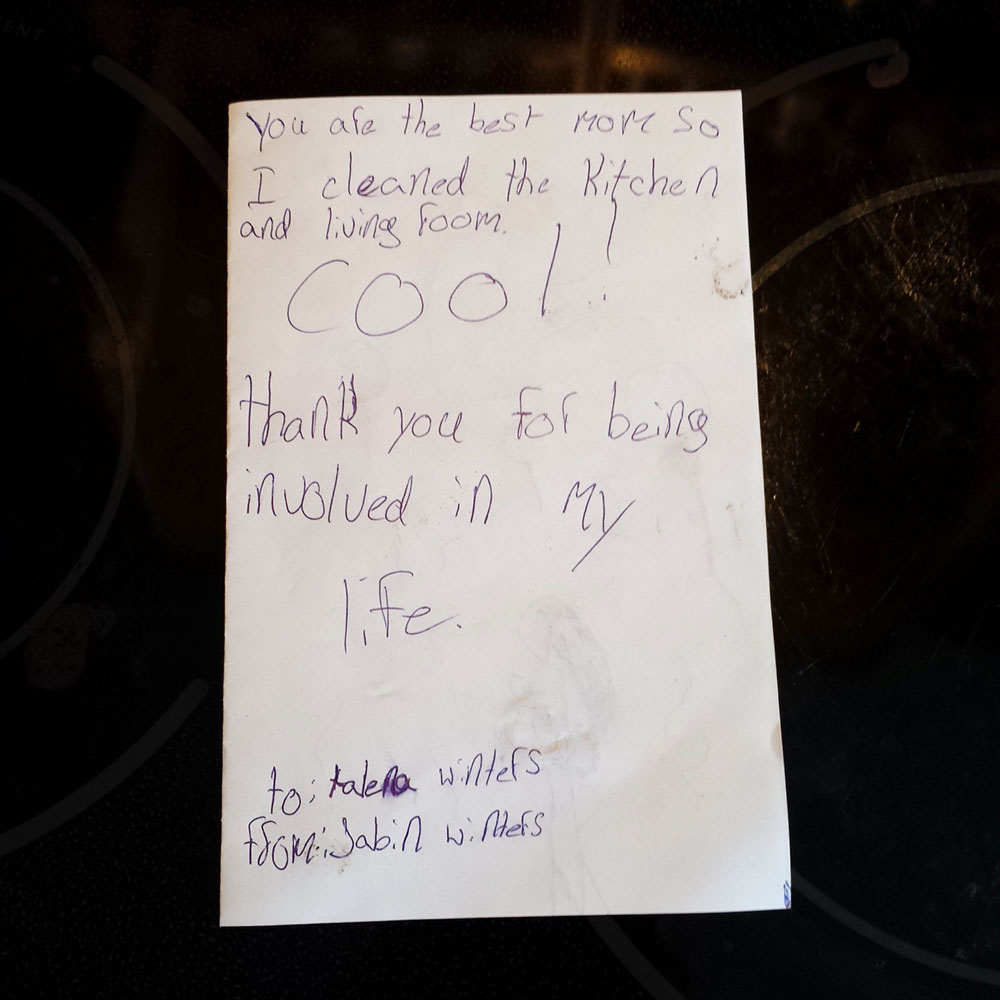 ENT
you are the best mom so
I cleaned the kitchen
and living room.
cool!
thank you for being
involved in my
life.
to: talena winters
from: Jabin winters